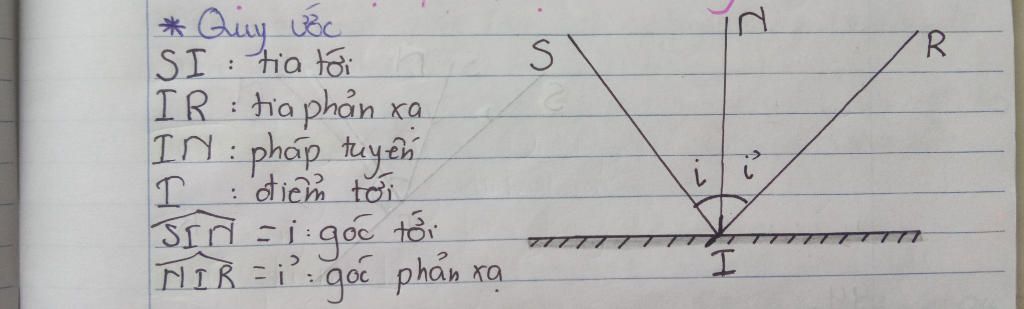 * Quy ước
SI : tia tới
IR : tia phản xạ
IN : pháp tuyến
I : điểm tới
SIN = i : góc tới
NIR = i' : góc phản xạ
S
N
R
i i'
I